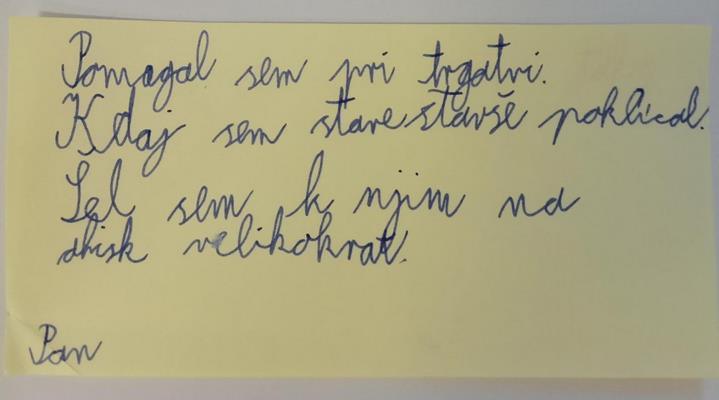 Pomagal sem pri trgatvi.
Kdaj sem stare stavše poklical.
Šel sem k njim na
obisk velikokrat.
Pan